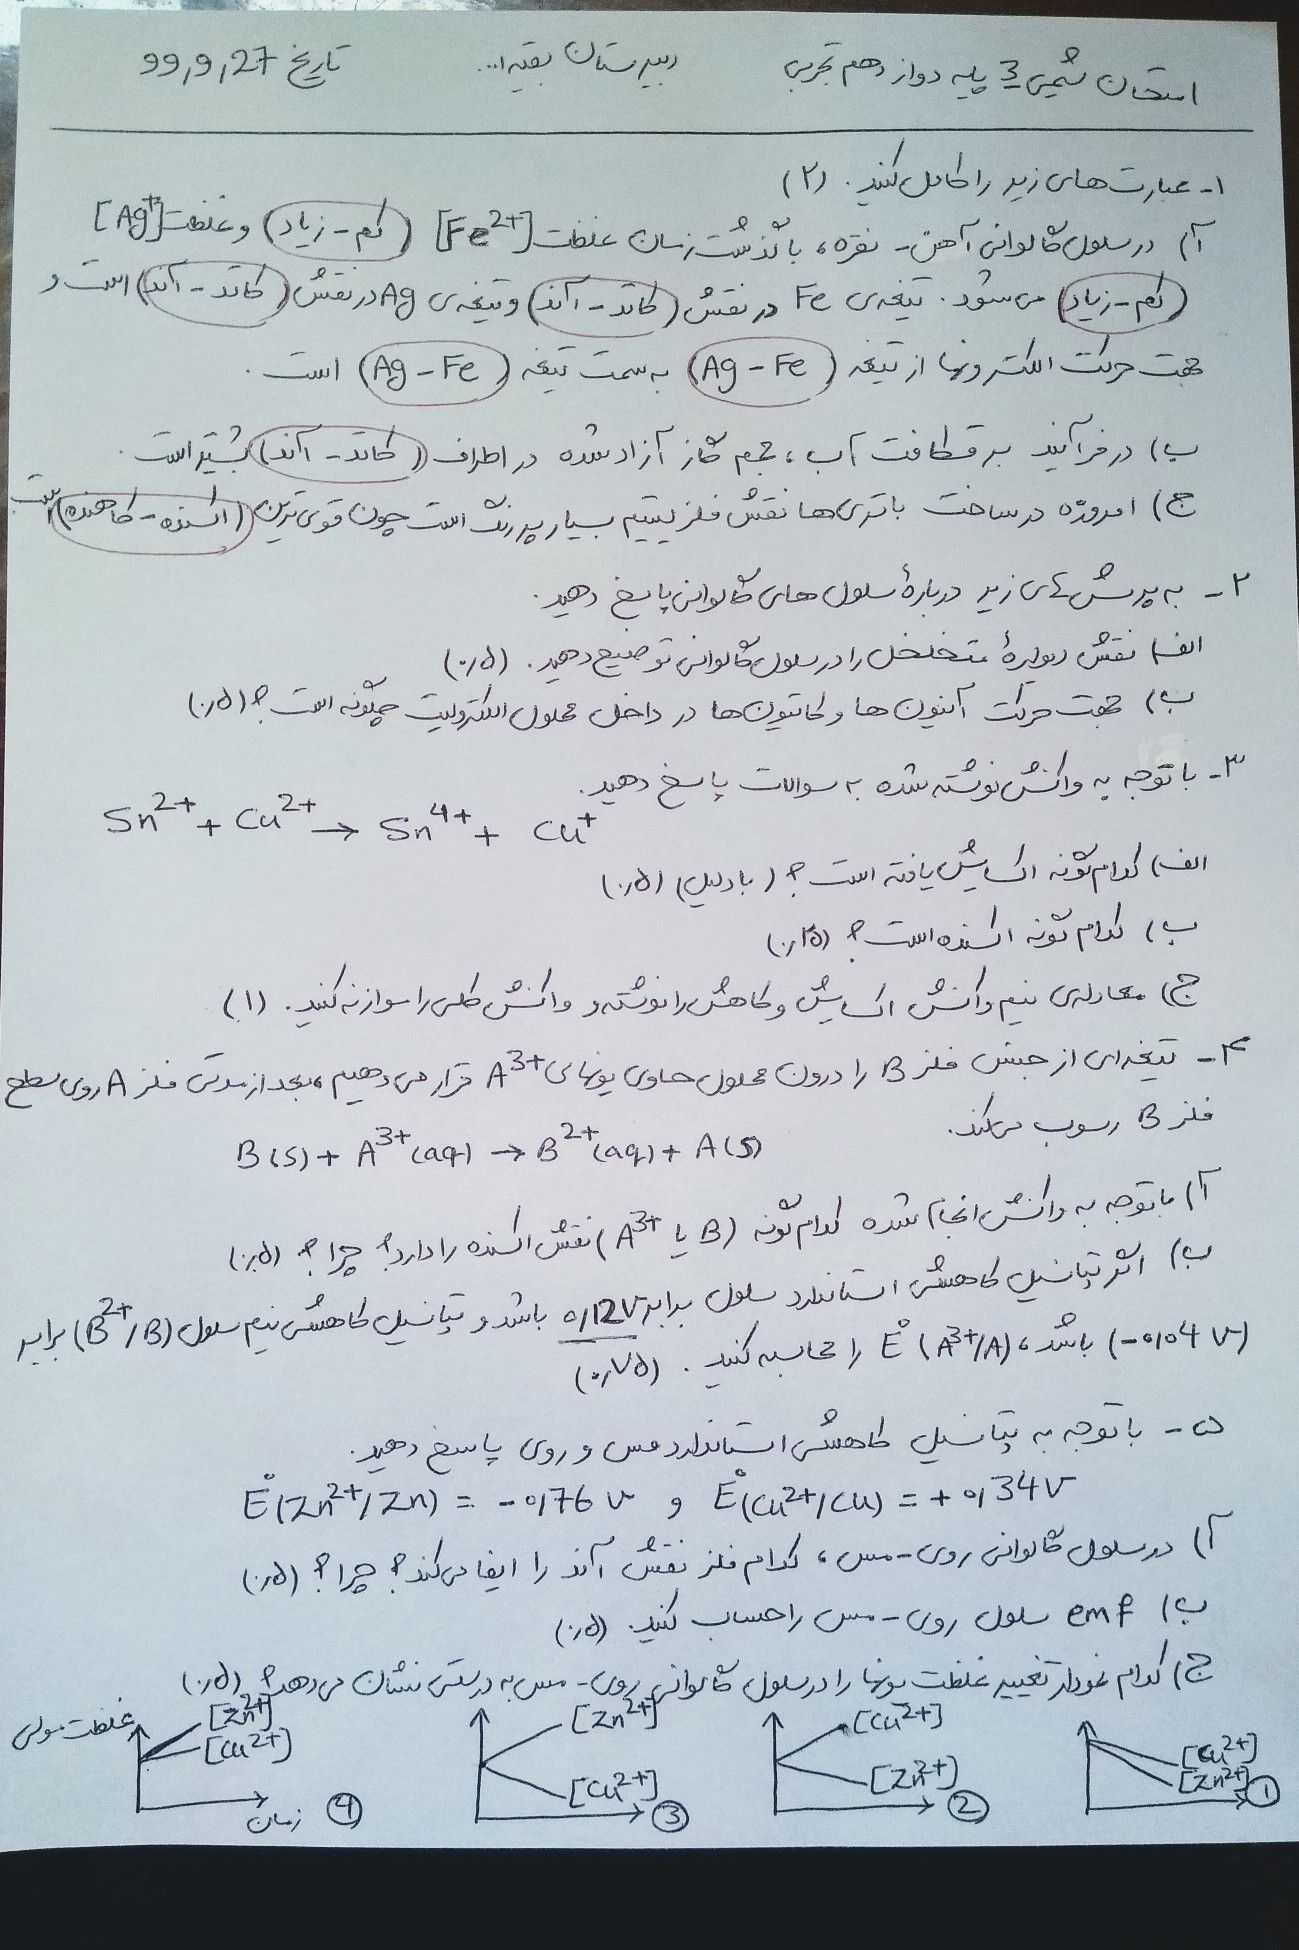 امتحان شیمی 3 پایه دوازدهم تجربی دبیرستان بقیه ا... تاریخ 99,9,27
۱- عبارت های زیر را کامل کنید. (۲)
آ) در سلول گالوانی آهن - نقره، با گذشت زمان غلظت [Fe2+] (کم - زیاد) و غلظت [Ag+]
(کم - زیاد) می شود. تیغه ی Fe در نقش (کاتد - آند) و تیغه ی Ag در نقش (کاتد - آند) است و
جهت حرکت الکترونها از تیغه (Ag - Fe) به سمت تیغه (Ag - Fe) است.
ب) در فرآیند برقکافت آب، حجم گاز آزاد شده در اطراف (کاتد - آند) بیشتر است.
ج) امروزه در ساخت باتری ها نقش فلز لیتیم بسیار پررنگ است چون قوی ترین (اکسنده - کاهنده) است
۲- به پرسش های زیر دربارهٔ سلول های گالوانی پاسخ دهید.
الف) نقش دیوارهٔ متخلخل را در سلول گالوانی توضیح دهید. (۰٫۵)
ب) جهت حرکت آنیون ها و کاتیون ها در داخل محلول الکترولیت چگونه است؟ (۰٫۵)
۳- با توجه به واکنش نوشته شده به سوالات پاسخ دهید.
Sn2+ + Cu2+ → Sn4+ + Cu+
الف) کدام گونه اکسایش یافته است؟ (با دلیل) (۰٫۵)
ب) کدام گونه اکسنده است؟ (۰٫۲۵)
ج) معادله ی نیم واکنش اکسایش و کاهش را نوشته و واکنش کلی را موازنه کنید. (۱)
۴- تیغه ای از جنس فلز B را درون محلول حاوی یونهای A3+ قرار می دهیم، بعد از مدتی فلز A روی سطح
فلز B رسوب می کند.
B(s) + A3+(aq) → B2+(aq) + A(s)
آ) با توجه به واکنش انجام شده کدام گونه (B یا A3+) نقش اکسنده را دارد؟ چرا؟ (۰٫۵)
ب) اگر پتانسیل کاهشی استاندارد سلول برابر 0,12V باشد و پتانسیل کاهشی نیم سلول (B2+/B) برابر
(-0,04 V) باشد، E°(A3+/A) را محاسبه کنید. (۰٫۷۵)
۵- با توجه به پتانسیل کاهشی استاندارد مس و روی پاسخ دهید.
E°(Zn2+/Zn) = -0,76 V و E°(Cu2+/Cu) = +0,34V
آ) در سلول گالوانی روی - مس، کدام فلز نقش آند را ایفا می کند؟ چرا؟ (۰٫۵)
ب) emf سلول روی - مس را حساب کنید. (۰٫۵)
ج) کدام نمودار تغییر غلظت یونها را در سلول گالوانی روی - مس به درستی نشان می دهد؟ (۰٫۵)
[Cu2+] [Zn2+] 1
[Cu2+] [Zn2+] 2
[Zn2+] [Cu2+] 3
غلظت مولی [Zn2+] [Cu2+] زمان 4